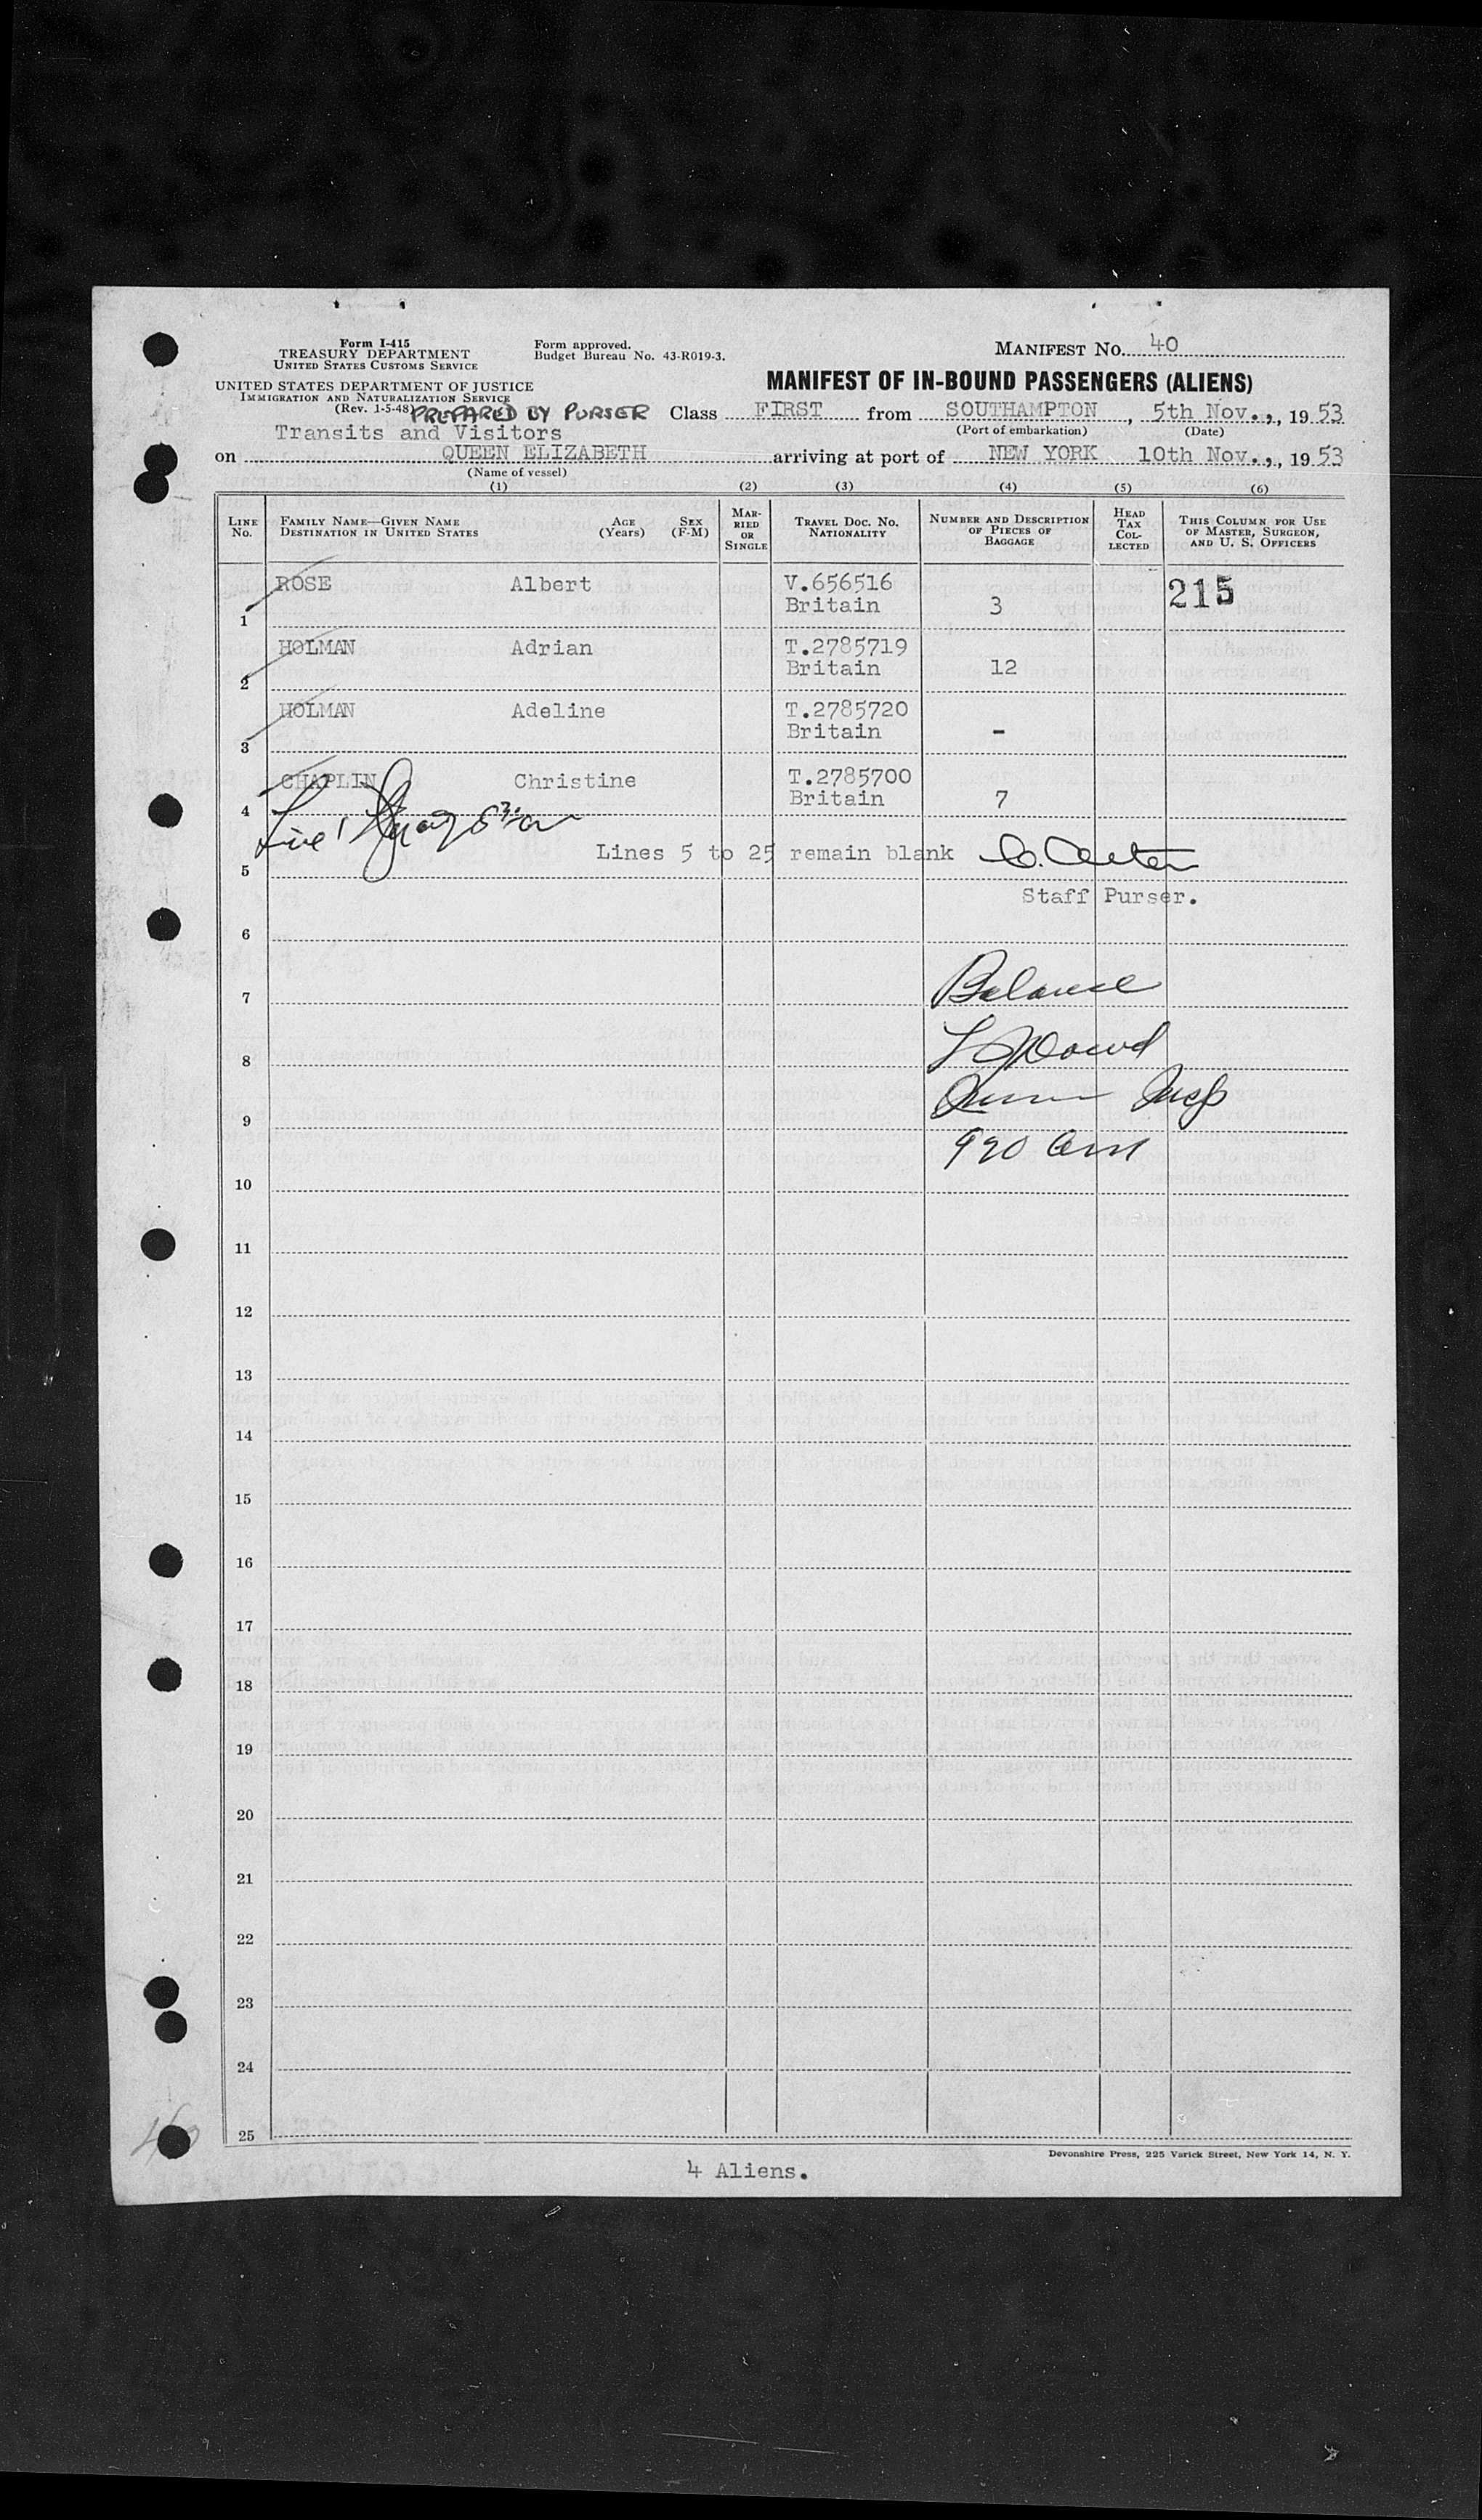 Form I-415
TREASURY DEPARTMENT
UNITED STATES CUSTOMS SERVICE
Form approved.
Budget Bureau No. 43-R019-3.
MANIFEST No. 40
UNITED STATES DEPARTMENT OF JUSTICE
IMMIGRATION AND NATURALIZATION SERVICE
(Rev. 1-5-48)
MANIFEST OF IN-BOUND PASSENGERS (ALIENS)
PREPARED BY PURSER Class FIRST from SOUTHAMPTON, 5th Nov., 1953
(Port of embarkation) (Date)
Transits and Visitors
on QUEEN ELIZABETH arriving at port of NEW YORK 10th Nov., 1953
(Name of vessel)
(1) (2) (3) (4) (5) (6)
LINE No. FAMILY NAME—GIVEN NAME DESTINATION IN UNITED STATES AGE (Years) SEX (F-M) MARRIED OR SINGLE TRAVEL DOC. NO. NATIONALITY NUMBER AND DESCRIPTION OF PIECES OF BAGGAGE HEAD TAX COLLECTED THIS COLUMN FOR USE OF MASTER, SURGEON, AND U. S. OFFICERS
ROSE Albert V.656516 215
1 Britain 3
HOLMAN Adrian T.2785719
2 Britain 12
HOLMAN Adeline T.2785720
3 Britain -
CHAPLIN Christine T.2785700
4 Britain 7
Lines 5 to 25 remain blank
5
Staff Purser.
6
Balance
7
8
9
920 am
10
11
12
13
14
15
16
17
18
19
20
21
22
23
24
25
Devonshire Press, 225 Varick Street, New York 14, N. Y.
4 Aliens.
40